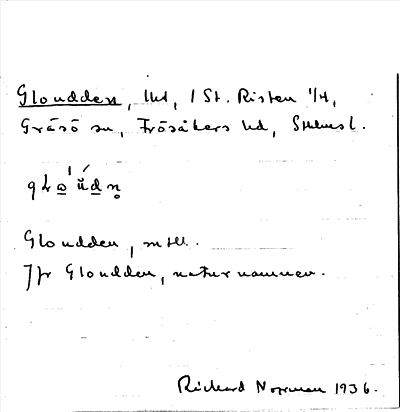 Gloudden, lht, 1 St. Risten 1/4,
Gräsö sn, Frösåkers hd, Sthlmsl.
Gloudden, mtll.
Jfr Gloudden, naturnamnen.
Rickard Norrman 1936.